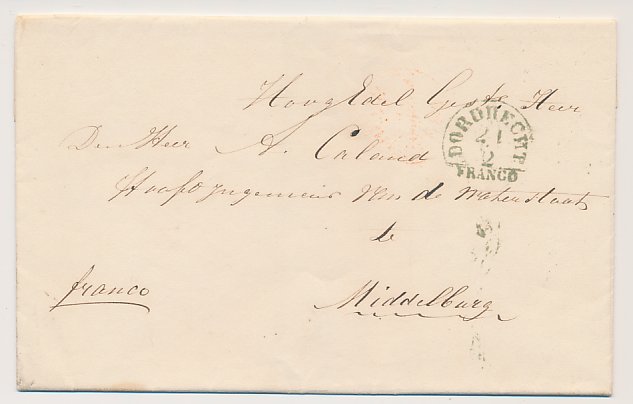 HoogEdel Gestr Heer
Den Heer A. Caland
DORDRECHT
21
2
FRANCO
Hoofd Ingenieur van de Waterstaat
te
franco
Middelburg